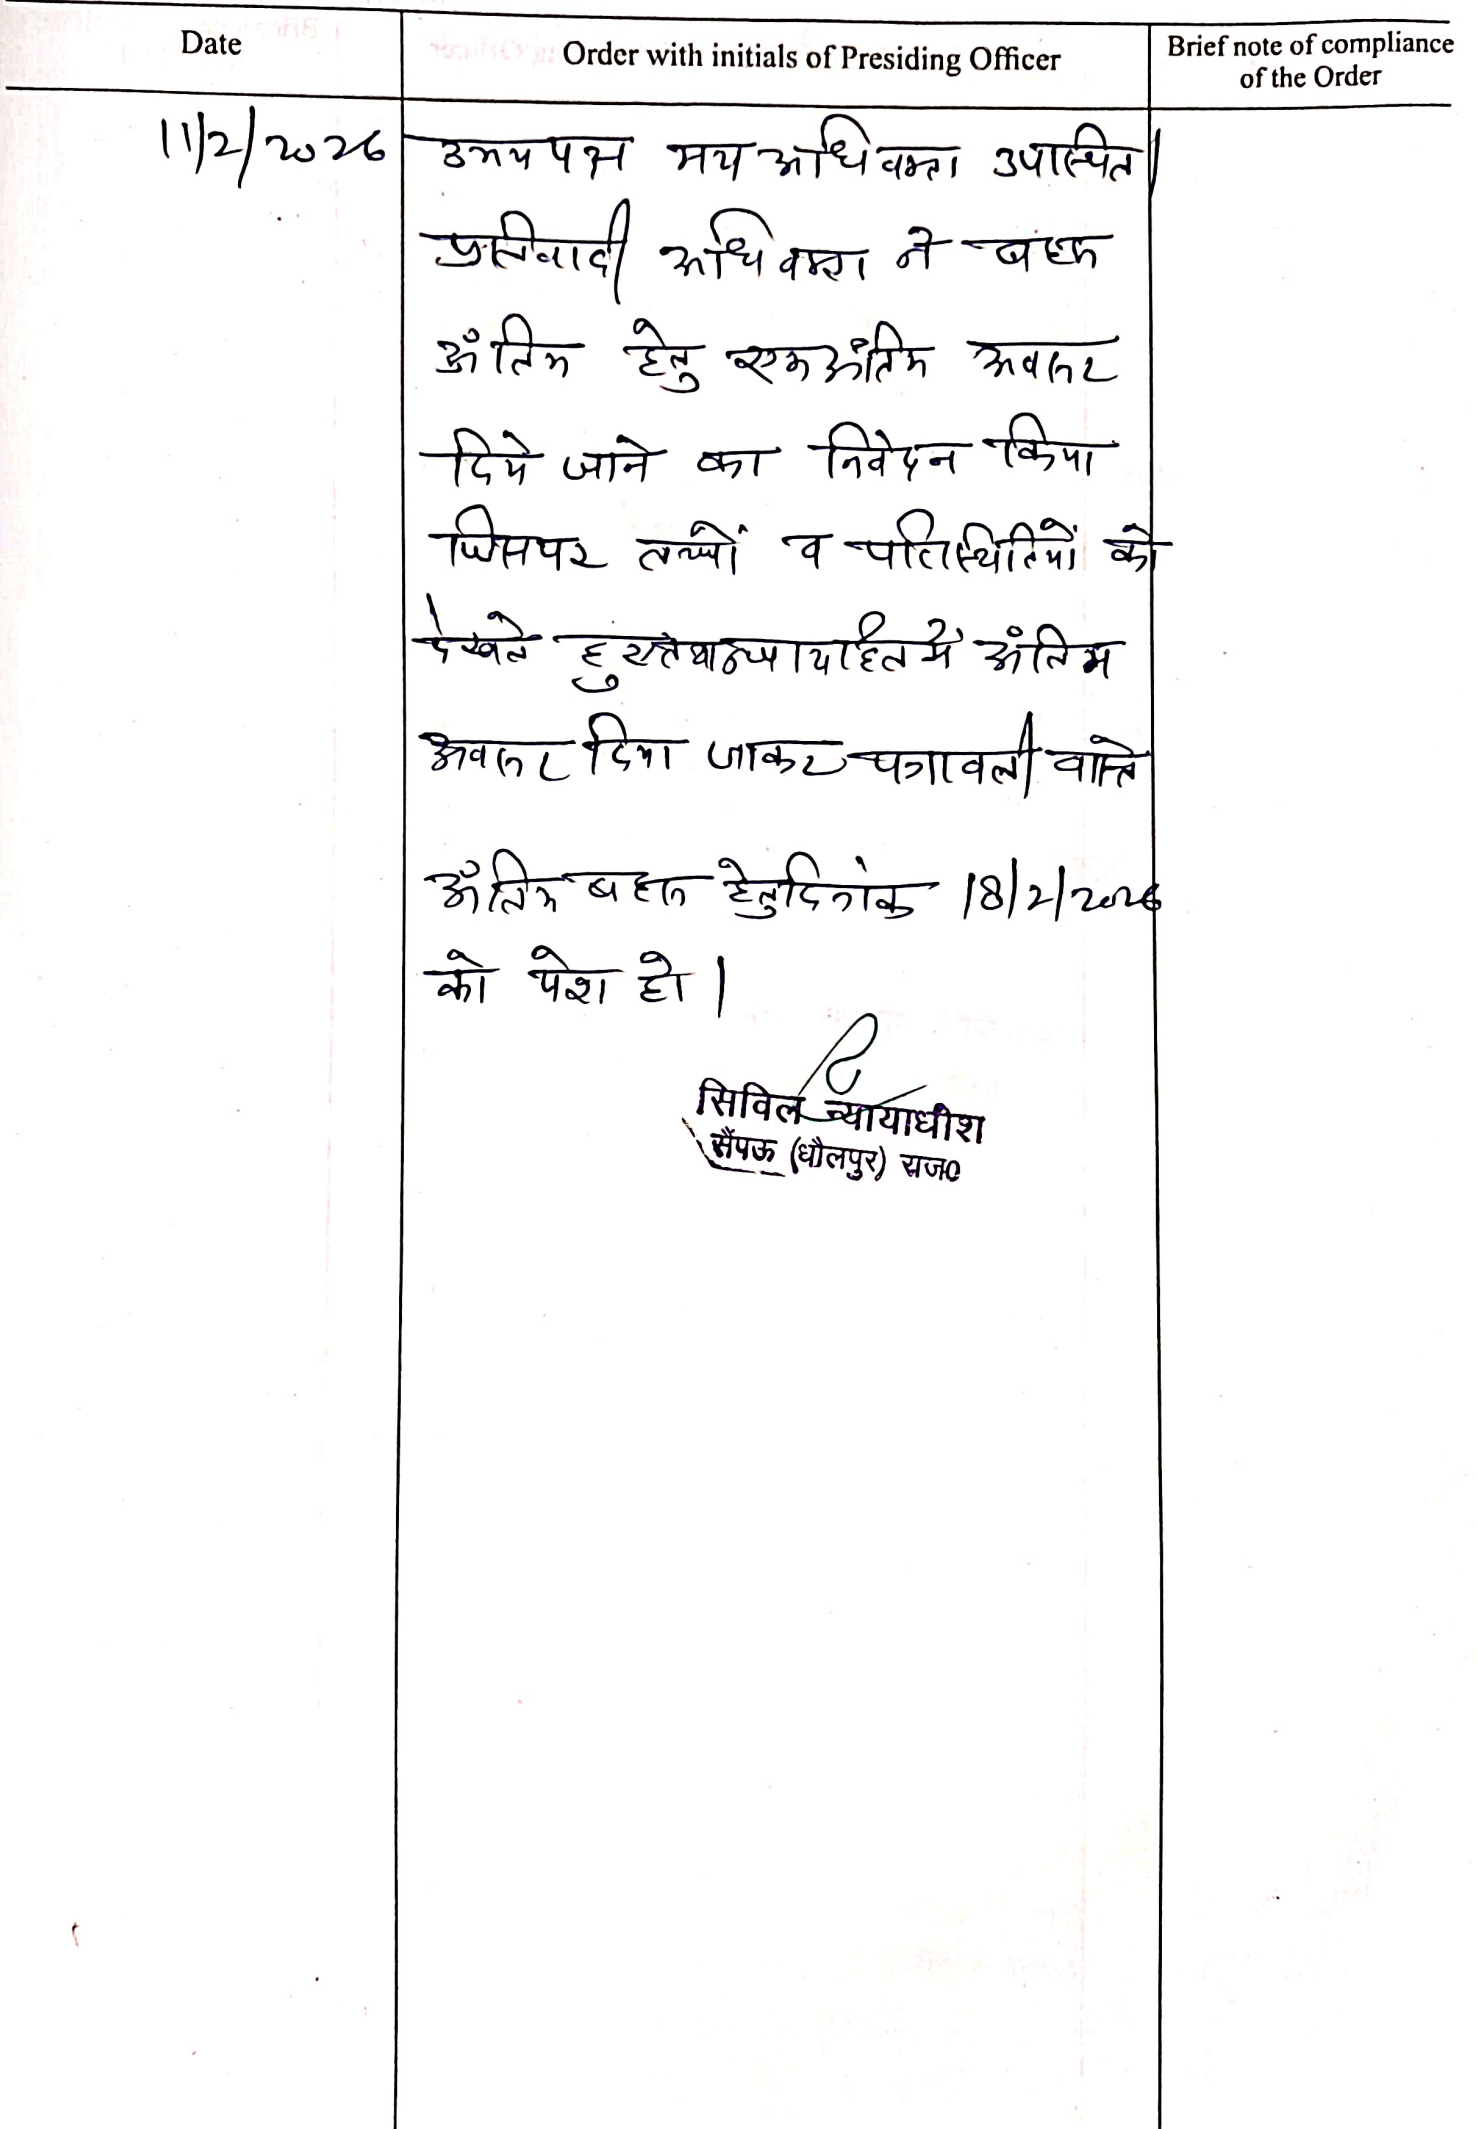 Date
Order with initials of Presiding Officer
Brief note of compliance
of the Order
11/2/2026
उभय पक्ष मय अधिवक्ता उपस्थित।
प्रतिवादी अधिवक्ता ने बहस
अंतिम हेतु एक अंतिम अवसर
दिये जाने का निवेदन किया
जिसपर तथ्यों व परिस्थितियों को
देखते हुए न्यायहित में अंतिम
अवसर दिया जाकर पत्रावली वास्ते
अंतिम बहस हेतु दिनांक 18/2/2026
को पेश हो।
सिविल न्यायाधीश
सैंपऊ (धौलपुर) राज०